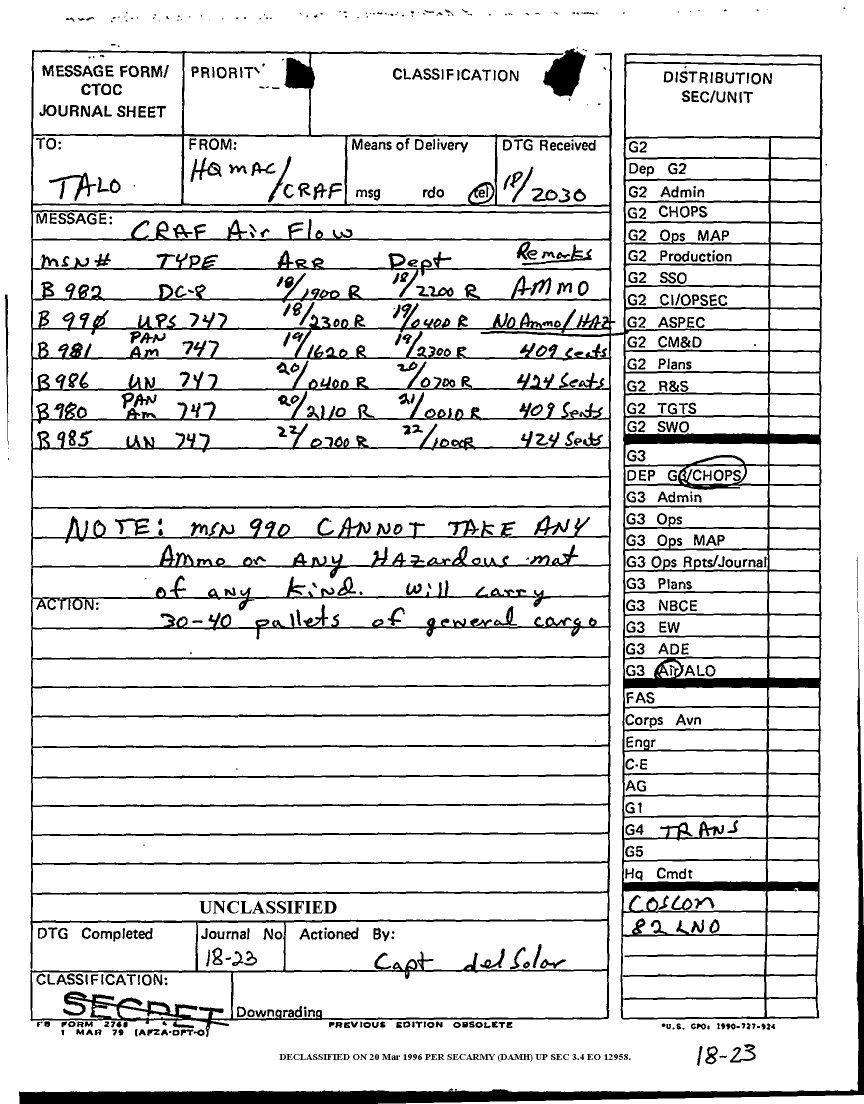 MESSAGE FORM/ CTOC JOURNAL SHEET
PRIORITY
CLASSIFICATION
TO: TALO
FROM: HQ MAC/CRAF
Means of Delivery
msg rdo tel
DTG Received
18/2030
MESSAGE: CRAF Air Flow
MSN# TYPE ARR Dept Remarks
B 982 DC-8 18/1900 R 18/2200 R AMMO
B 990 UPS 747 18/2300 R 19/0400 R NO Ammo/HAZ
B 981 PAN Am 747 19/1620 R 19/2300 R 409 Seats
B 986 UN 747 20/0400 R 20/0700 R 424 Seats
B 980 PAN Am 747 20/2110 R 21/0010 R 409 Seats
B 985 UN 747 22/0700 R 22/1000R 424 Seats
NOTE: MSN 990 CANNOT TAKE ANY
Ammo or ANY HAZardous mat
of any kind. will carry
ACTION:
30-40 pallets of general cargo
UNCLASSIFIED
DTG Completed
Journal No
18-23
Actioned By:
Capt delSolar
CLASSIFICATION:
SECRET
Downgrading
FB FORM 2768
1 MAR 79 (AFZA-DPT-O)
PREVIOUS EDITION OBSOLETE
DISTRIBUTION
SEC/UNIT
G2
Dep G2
G2 Admin
G2 CHOPS
G2 Ops MAP
G2 Production
G2 SSO
G2 CI/OPSEC
G2 ASPEC
G2 CM&D
G2 Plans
G2 R&S
G2 TGTS
G2 SWO
G3
DEP G3/CHOPS
G3 Admin
G3 Ops
G3 Ops MAP
G3 Ops Rpts/Journal
G3 Plans
G3 NBCE
G3 EW
G3 ADE
G3 Air/ALO
FAS
Corps Avn
Engr
C-E
AG
G1
G4 TRANS
G5
Hq Cmdt
COSCOM
82 LNO
*U.S. GPO: 1990-727-924
18-23
DECLASSIFIED ON 20 Mar 1996 PER SECARMY (DAMH) UP SEC 3.4 EO 12958.